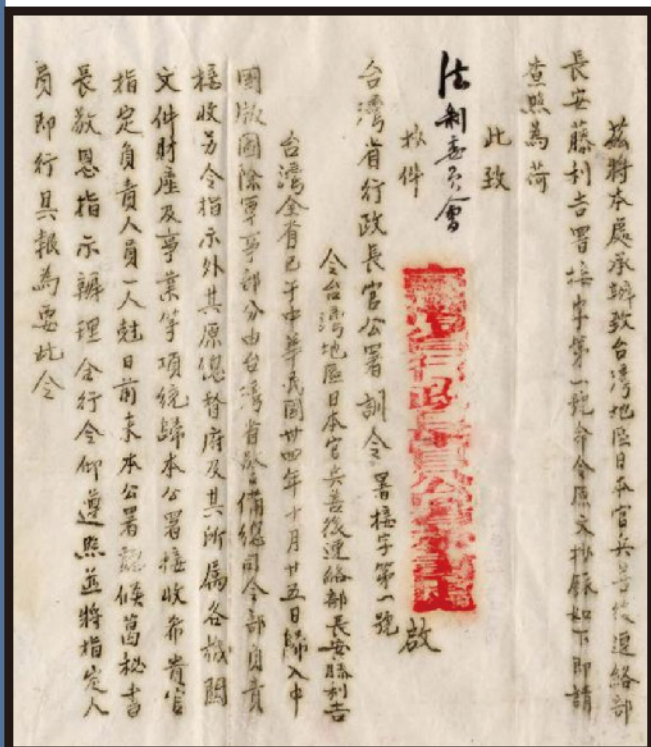 茲將本處承辦致台灣地區日本官兵善後連絡部
長安藤利吉署接字第一號命令原文抄錄如下即請
查照為荷
此致
法制委員會
啟
抄件
台灣省行政長官公署訓令 署接字第一號
令台灣地區日本官兵善後連絡部長安藤利吉
台灣全省已于中華民國卅四年十月廿五日歸入中
國版圖除軍事部分由台灣省警備總司令部負責
接收另令指示外其原總督府及其所屬各機關
文件財產及事業等項統歸本公署接收希貴官
指定負責人員一人尅日前來本公署聽候葛秘書
長敬恩指示辦理合行令仰遵照並將指定人
員即行具報為要此令